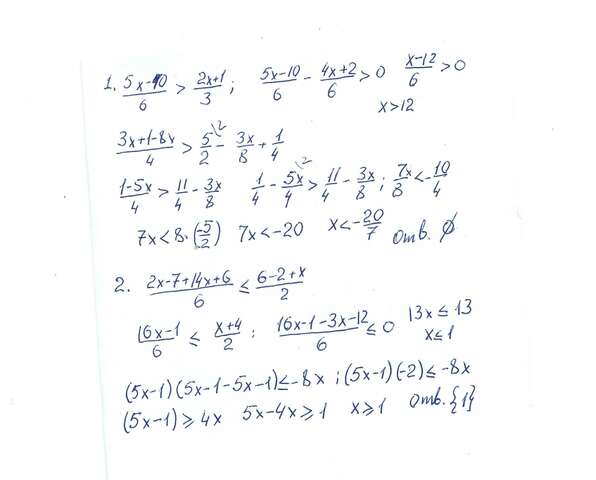 1. (5x-10)/6 > (2x+1)/3 ; (5x-10)/6 - (4x+2)/6 > 0 (x-12)/6 > 0
x>12
(3x+1-8x)/4 > 5/2 - 3x/8 + 1/4
(1-5x)/4 > 11/4 - 3x/8 1/4 - 5x/4 > 11/4 - 3x/8 ; 7x/8 < -10/4
7x<8·(-5/2) 7x<-20 x<-20/7 Отв. ∅
2. (2x-7+14x+6)/6 ≤ (6-2+x)/2
(16x-1)/6 ≤ (x+4)/2 ; (16x-1-3x-12)/6 ≤ 0 13x ≤ 13
x≤1
(5x-1)(5x-1-5x-1)≤-8x ; (5x-1)(-2)≤-8x
(5x-1)≥4x 5x-4x≥1 x≥1 Отв. {1}